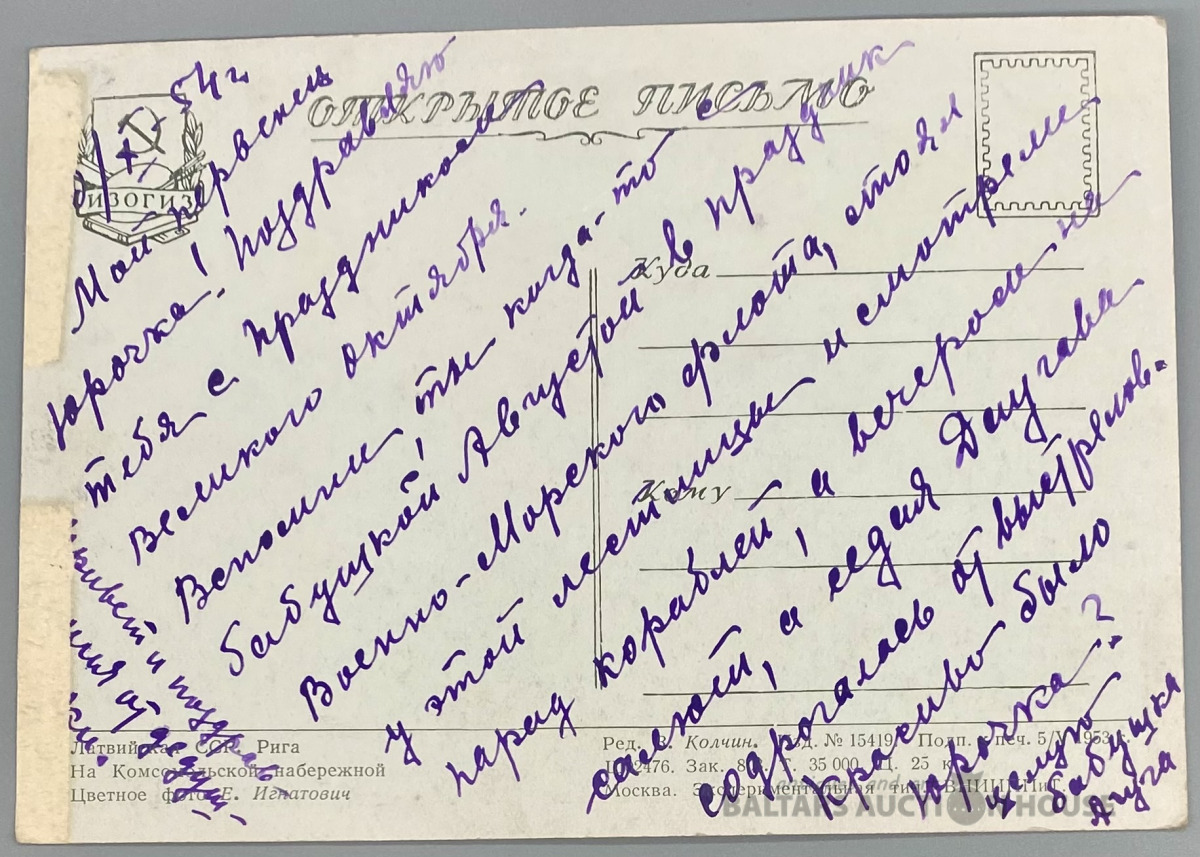 ОТКРЫТОЕ ПИСЬМО
ИЗОГИЗ
54 г.
Мой первенец
Юрочка! Поздравляю
тебя с праздником
Великого октября.
Вспомни, ты когда-то с
бабушкой Августой в праздник
Военно-Морского флота, стоял
у этой лестницы и смотрели
парад кораблей, а вечером на
салют, а седая Даугава
содрогалась от выстрелов.
Красиво было
Юрочка?
Целую
бабушка
Агуга
привет и поздрав
ления от дедуш
ки.
Куда
Кому
Латвийская ССР. Рига
На Комсомольской набережной
Цветное фото Е. Игнатович
Ред. В. Колчин. Изд. № 15419. Подп. к печ. 5/V 1953 г.
2476. Зак. Т. 35 000. Ц. 25 к.
Москва. Экспериментальная тип. ВНИИППиТ
BALTARS AUCTION HOUSE